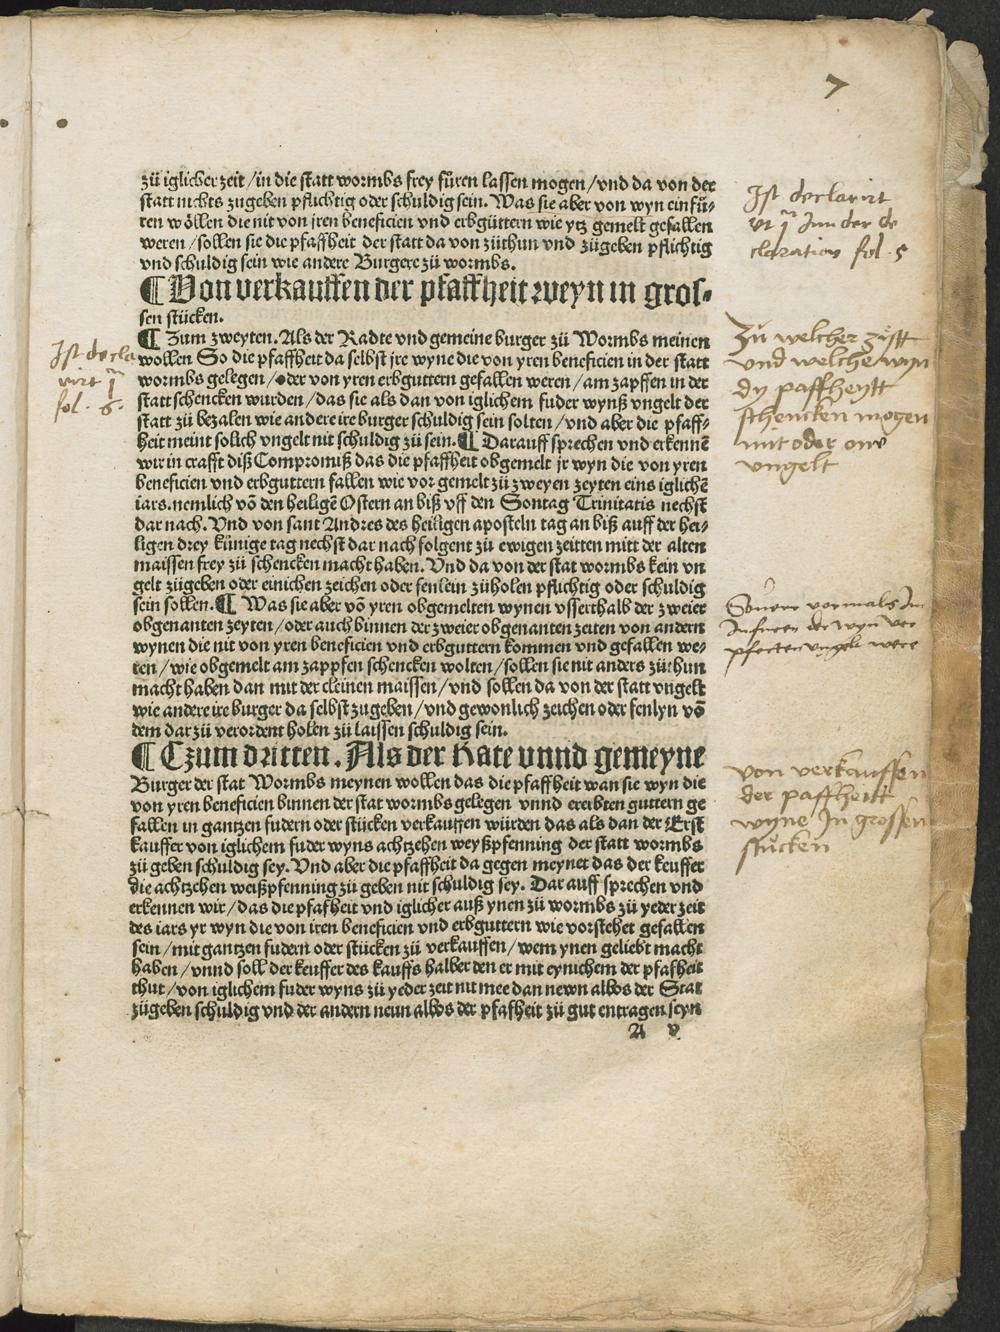 7
zů iglicher zeit / in die statt wormbs frey fůren lassen mogen / vnd da von der
statt nichts zugeben pflichtig oder schuldig sein. Was sie aber von wyn ein fů-
ren wöllen die nit von jren beneficien vnd erbgüttern wie ytz gemelt gefallen
weren / sollen sie die pfaffheit der statt da von zůthun vnd zůgeben pflichtig
vnd schuldig sein wie andere Burgere zů wormbs.
¶ Von verkauffen der pfaffheit weyn in gros-
sen stücken.
¶ Zum zweyten. Als der Radte vnd gemeine burger zů Wormbs meinen
wollen So die pfaffheit da selbst jre wyne die von yren beneficien in der statt
wormbs gelegen / oder von yren erbguttern gefallen weren / am zapffen in der
statt schencken wurden / das sie als dan von iglichem fuder wynß vngelt der
statt zů bezalen wie andere ire burger schuldig sein solten / vnd aber die pfaff-
heit meint solich vngelt nit schuldig zů sein. ¶ Darauff sprechen vnd erkennē
wir in crafft diß Compromiß das die pfaffheit obgemelt jr wyn die von yren
beneficien vnd erbguttern fallen wie vor gemelt zů zweyen zeyten eins iglichē
iars. nemlich vō den heiligē Ostern an biß vff den Sontag Trinitatis nechst
dar nach. Vnd von sant Andres des heiligen aposteln tag an biß auff der hei-
ligen drey künige tag nechst dar nach folgent zů ewigen zeitten mitt der alten
maissen frey zů schencken macht haben. Vnd da von der stat wormbs kein vn
gelt zůgeben oder einichen zeichen oder fenlein zůholen pflichtig oder schuldig
sein sollen. ¶ Was sie aber vō yren obgemelten wynen vsserthalb der zweier
obgenanten zeyten / oder auch binnen der zweier obgenanten zeiten von andern
wynen die nit von yren beneficien vnd erbguttern kommen vnd gefallen we-
ren / wie obgemelt am zappfen schencken wolten / sollen sie nit anders zůthun
macht haben dan mit der cleinen maissen / vnd sollen da von der statt vngelt
wie andere ire burger da selbst zugeben / vnd gewonlich zeichen oder fenlyn vō
dem dar zů verordent holen zů laissen schuldig sein.
¶ Czum dritten. Als der Rate vnnd gemeyne
Burger der stat Wormbs meynen wollen das die pfaffheit wan sie wyn die
von yren beneficien binnen der stat wormbs gelegen vnnd ererbten guttern ge
fallen in gantzen fudern oder stücken verkauffen würden das als dan der Erst
kauffer von iglichem fuder wyns achtzehen weyßpfenning der statt wormbs
zů geben schuldig sey. Vnd aber die pfaffheit da gegen meynet das der keuffer
die achtzehen weißpfenning zů geben nit schuldig sey. Dar auff sprechen vnd
erkennen wir / das die pfafheit vnd iglicher auß ynen zů wormbs zů yeder zeit
des iars yr wyn die von iren beneficien vnd erbguttern wie vorstehet gefallen
sein / mit gantzen fudern oder stücken zů verkauffen / wem ynen geliebt macht
haben / vnnd soll der keuffer des kauffs halber den er mit eynichem der pfafheit
thut / von iglichem fuder wyns zů yeder zeit nit mee dan newn albos der Stat
zůgeben schuldig vnd der andern neun albos der pfafheit zů gut entragen seyn
A v
Ist decla
rirt
fol. 6.
Ist declarirt
Inn der de
claration fol. 5
Zu welcher zytt
vnd welche wyn
dy paffheytt
schencken mogen
mit oder one
vngelt
von verkauffen
der paffheitt
wyne In grossen
stůcken